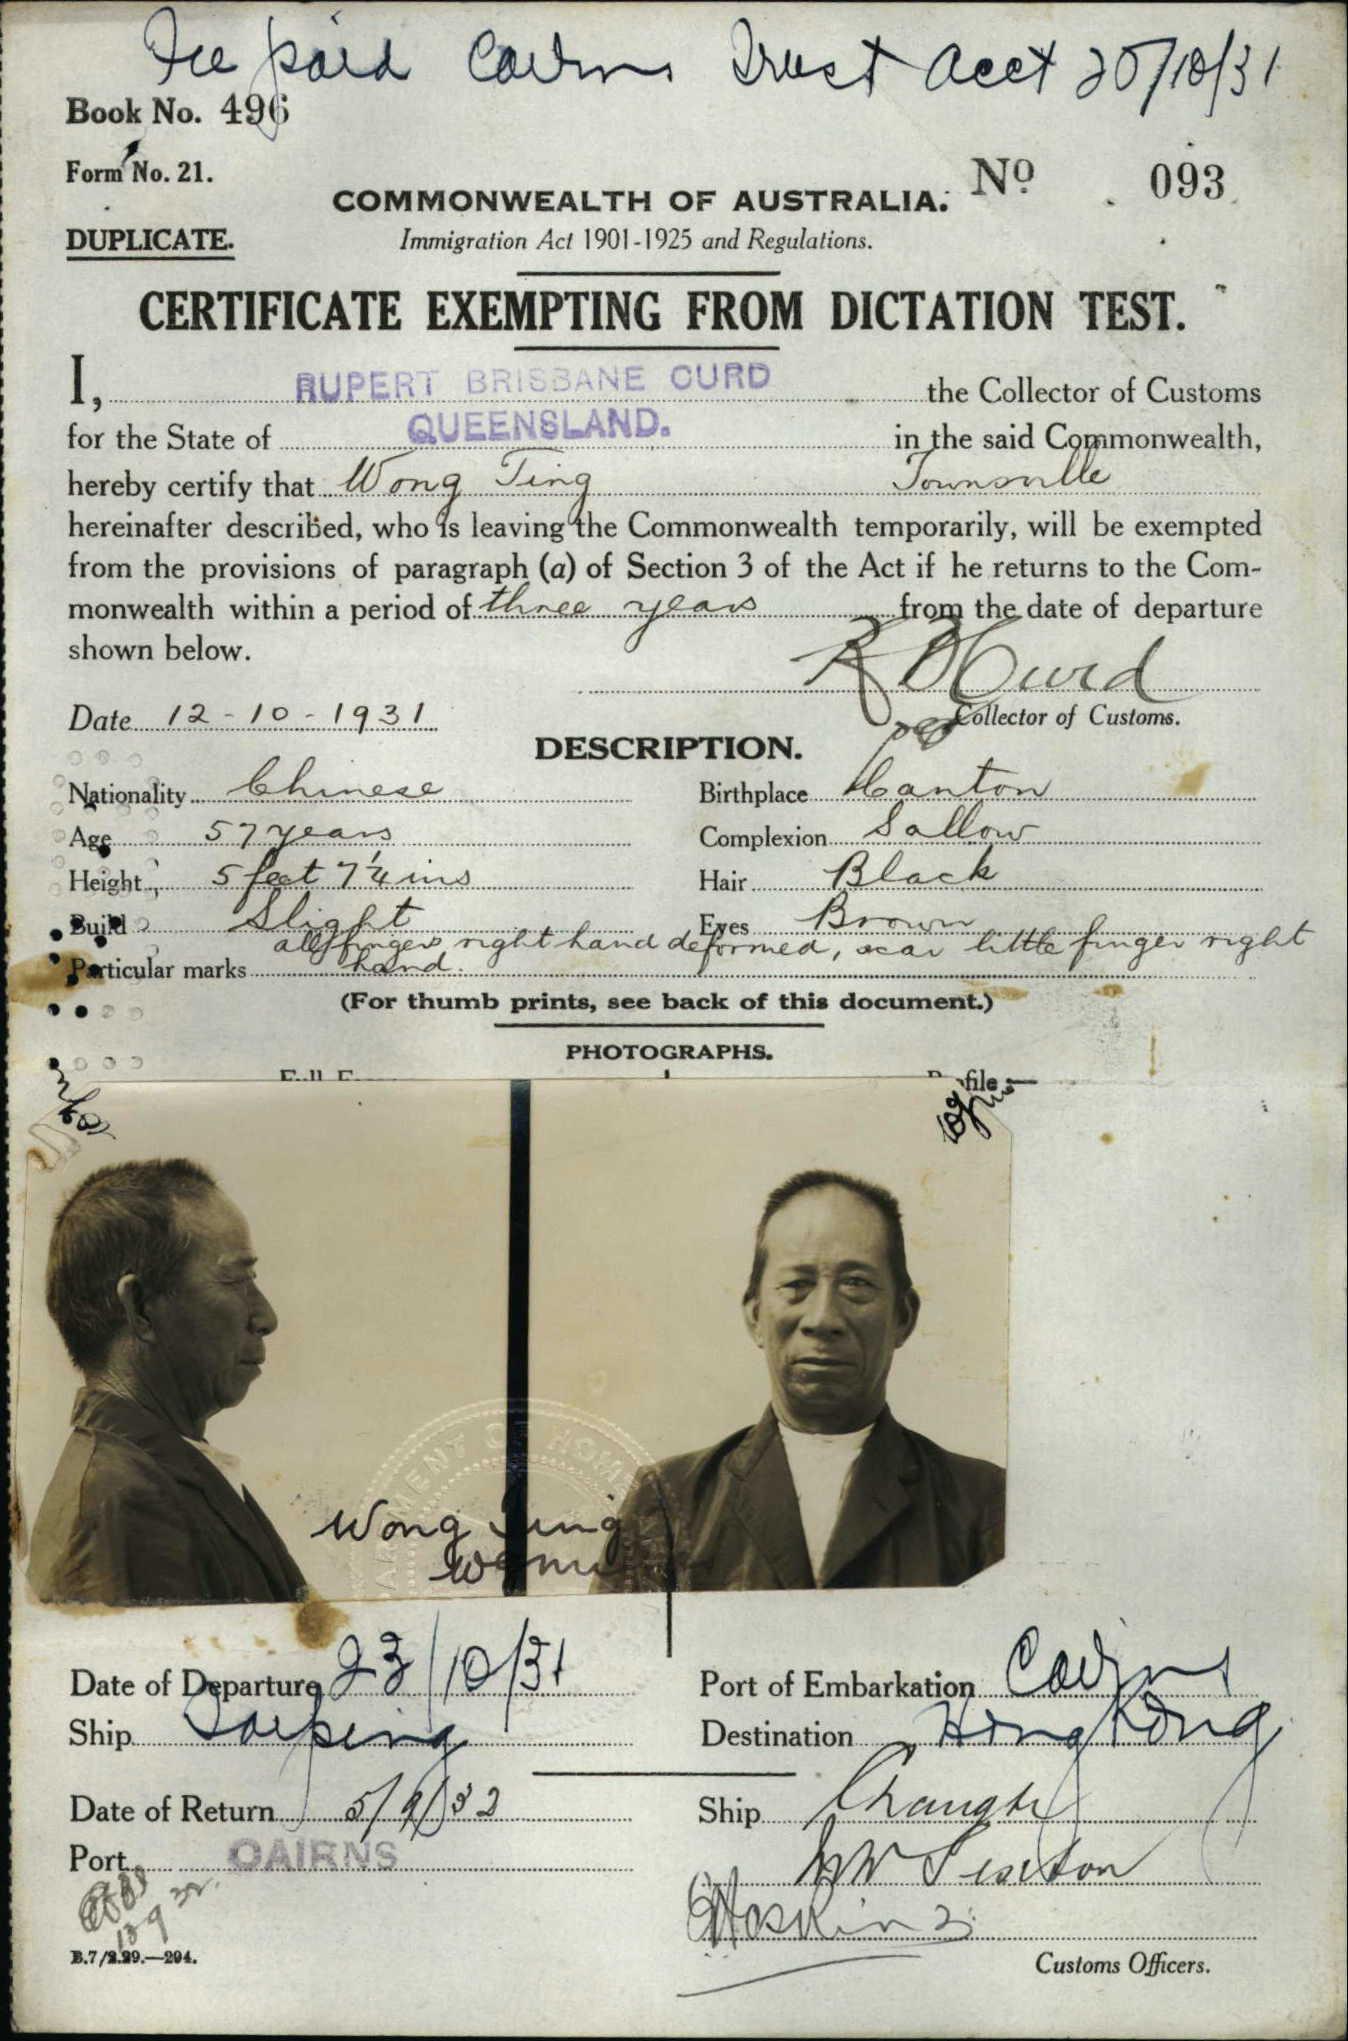 Fee paid Cairns Trust Acct 20/10/31
Book No. 496
Form No. 21.
No 093
COMMONWEALTH OF AUSTRALIA.
DUPLICATE.
Immigration Act 1901-1925 and Regulations.
CERTIFICATE EXEMPTING FROM DICTATION TEST.
I, RUPERT BRISBANE CURD the Collector of Customs
for the State of QUEENSLAND. in the said Commonwealth,
hereby certify that Wong Ting Townsville
hereinafter described, who is leaving the Commonwealth temporarily, will be exempted
from the provisions of paragraph (a) of Section 3 of the Act if he returns to the Com-
monwealth within a period of three years from the date of departure
shown below.
R B Curd
Date 12-10-1931 Collector of Customs.
DESCRIPTION.
Nationality Chinese Birthplace Canton
Age 57 years Complexion Sallow
Height 5 feet 7 1/4 ins Hair Black
Build Slight Eyes Brown
all fingers right hand deformed, scar little finger right
Particular marks hand.
(For thumb prints, see back of this document.)
PHOTOGRAPHS.
Full F
Profile :—
Wong Ting
Date of Departure 23/10/31 Port of Embarkation Cairns
Ship Taiping Destination Hong Kong
Date of Return 5/9/32 Ship Changte
Port CAIRNS
Hoskins
B.7/2.29.—294.
Customs Officers.